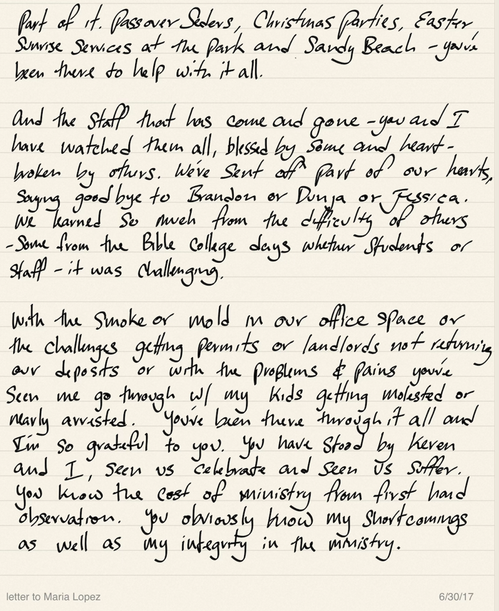 Part of it. Passover Seders, Christmas Parties, Easter
Sunrise Services at the Park and Sandy Beach - you've
been there to help with it all.
And the Staff that has come and gone - you and I
have watched them all, blessed by some and heart-
broken by others. We've Sent off part of our hearts,
saying goodbye to Brandon or Dunja or Jessica.
We learned so much from the difficulty of others
- Some from the Bible College days whether Students or
Staff - it was challenging.
With the Smoke or mold in our office space or
the challenges getting permits or landlords not returning
our deposits or with the problems & pains you've
Seen me go through w/ my kids getting molested or
nearly arrested. You've been there through it all and
I'm so grateful to you. You have Stood by Keren
and I, seen us celebrate and seen us suffer.
You know the cost of ministry from first hand
observation. You obviously know my Shortcomings
as well as my integrity in the ministry.
letter to Maria Lopez
6/30/17